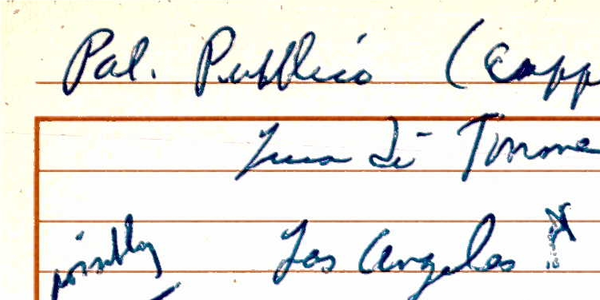 Pal. Pubblico (Capp
Luca di Tomme
possibly Los Angeles